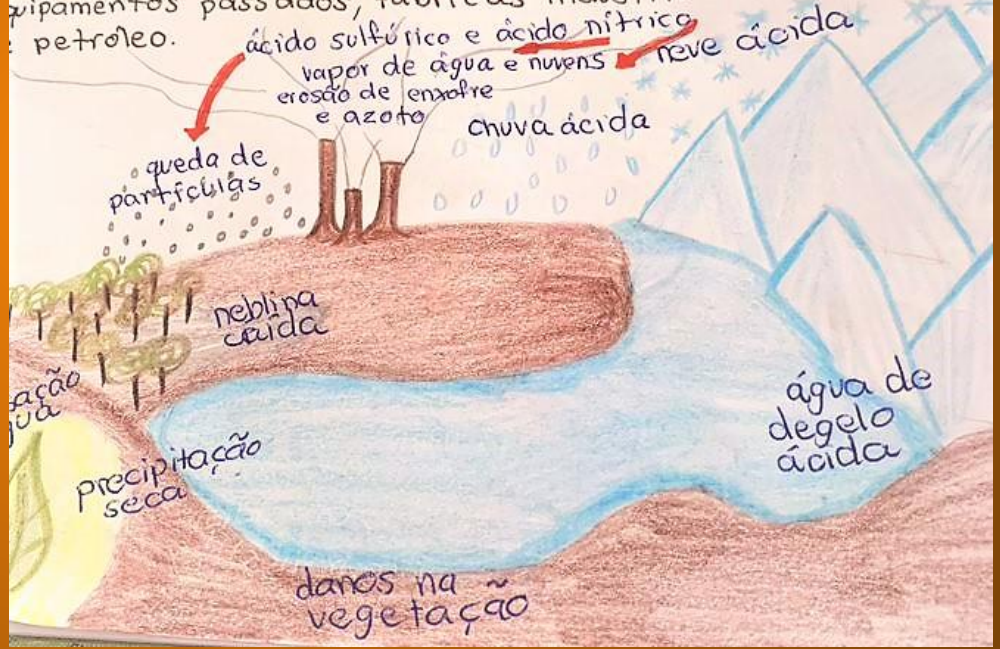 quipamentos passados,
petroleo.
ácido sulfúrico e ácido nítrico
vapor de água e nuvens
erosão de enxofre
e azoto
neve ácida
chuva ácida
queda de
partículas
neblina
caída
sação
gua
precipitação
seca
água de
degelo
ácida
danos na
vegetação